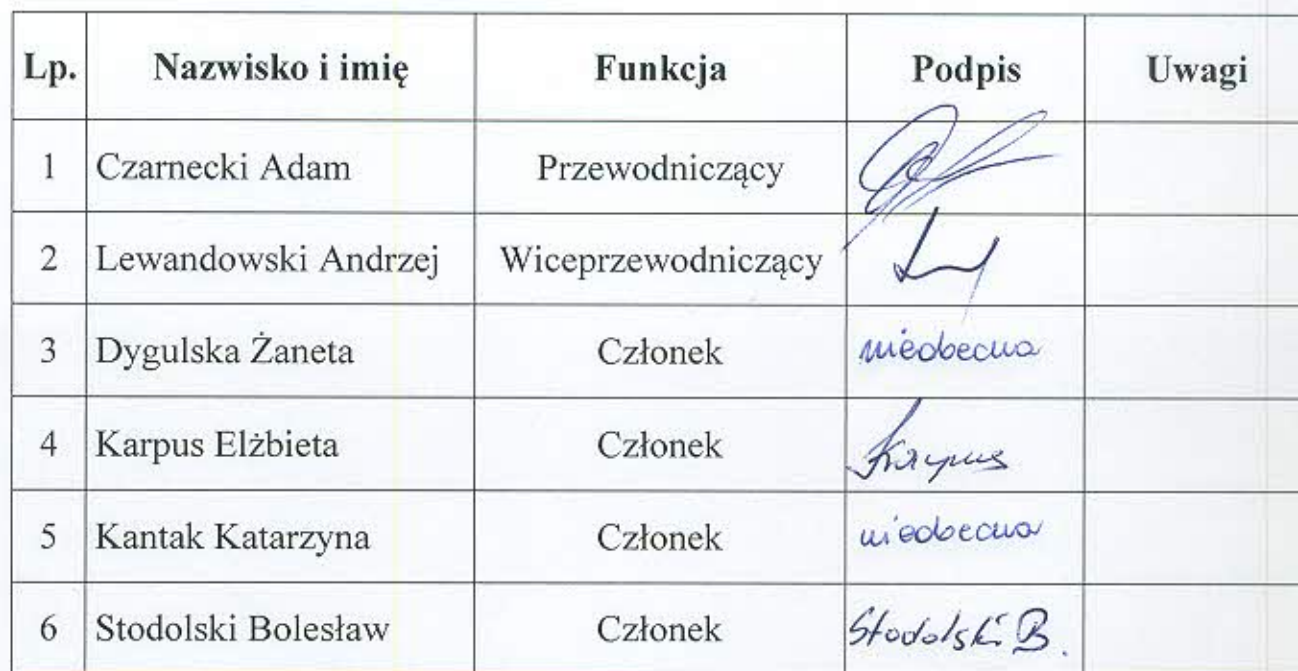 Lp. Nazwisko i imię Funkcja Podpis Uwagi
1 Czarnecki Adam Przewodniczący
2 Lewandowski Andrzej Wiceprzewodniczący
3 Dygulska Żaneta Członek nieobecna
4 Karpus Elżbieta Członek Karpus
5 Kantak Katarzyna Członek nieobecna
6 Stodolski Bolesław Członek Stodolski B.